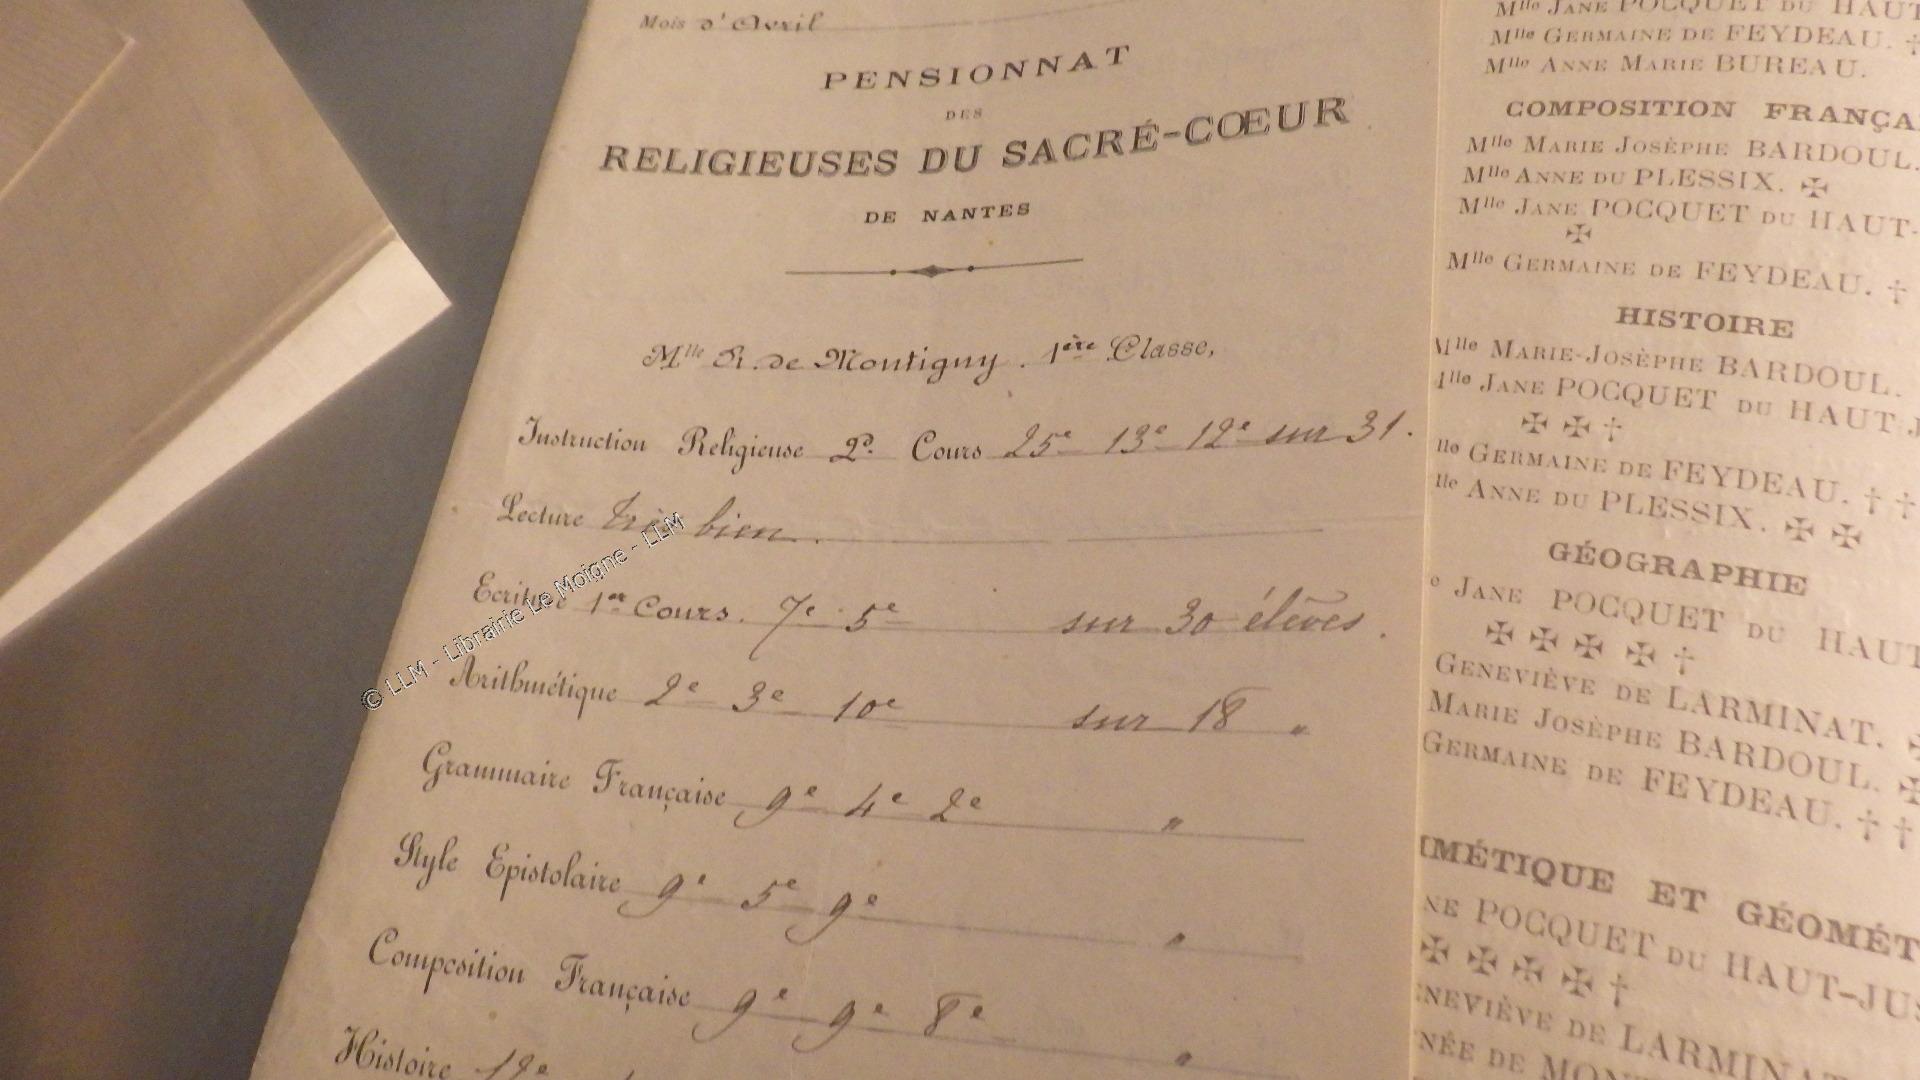 Mois d'Avril
PENSIONNAT
DES
RELIGIEUSES DU SACRÉ-CŒUR
DE NANTES
Mlle R. de Montigny. 1ère Classe,
Instruction Religieuse 2d. Cours 25e 13e 12e sur 31.
Lecture très bien.
Ecriture 1er Cours. 7e 5e sur 30 élèves.
Arithmétique 2e 3e 10e sur 18 "
Grammaire Française 9e 4e 2e "
Style Epistolaire 9e 5e 9e "
Composition Française 9e 9e 8e "
Histoire 12e
© LLM - Librairie Le Moigne - LLM
Mlle JANE POCQUET DU HAUT
Mlle GERMAINE DE FEYDEAU. †
Mlle ANNE MARIE BUREAU.
COMPOSITION FRANÇA
Mlle MARIE JOSÈPHE BARDOUL.
Mlle ANNE DU PLESSIX. ✠
Mlle JANE POCQUET DU HAUT-
✠
Mlle GERMAINE DE FEYDEAU. †
HISTOIRE
Mlle MARIE-JOSÈPHE BARDOUL.
lle JANE POCQUET DU HAUT-J
✠ ✠ †
lle GERMAINE DE FEYDEAU. † †
lle ANNE DU PLESSIX. ✠ ✠
GÉOGRAPHIE
e JANE POCQUET DU HAUT
✠ ✠ ✠ ✠ †
GENEVIÈVE DE LARMINAT. ✠
MARIE JOSÈPHE BARDOUL. ✠
GERMAINE DE FEYDEAU. † †
MÉTIQUE ET GÉOMÉT
NE POCQUET DU HAUT-JUS
✠ ✠ ✠ ✠ †
NEVIÈVE DE LARMINAT
NÉE DE MONT